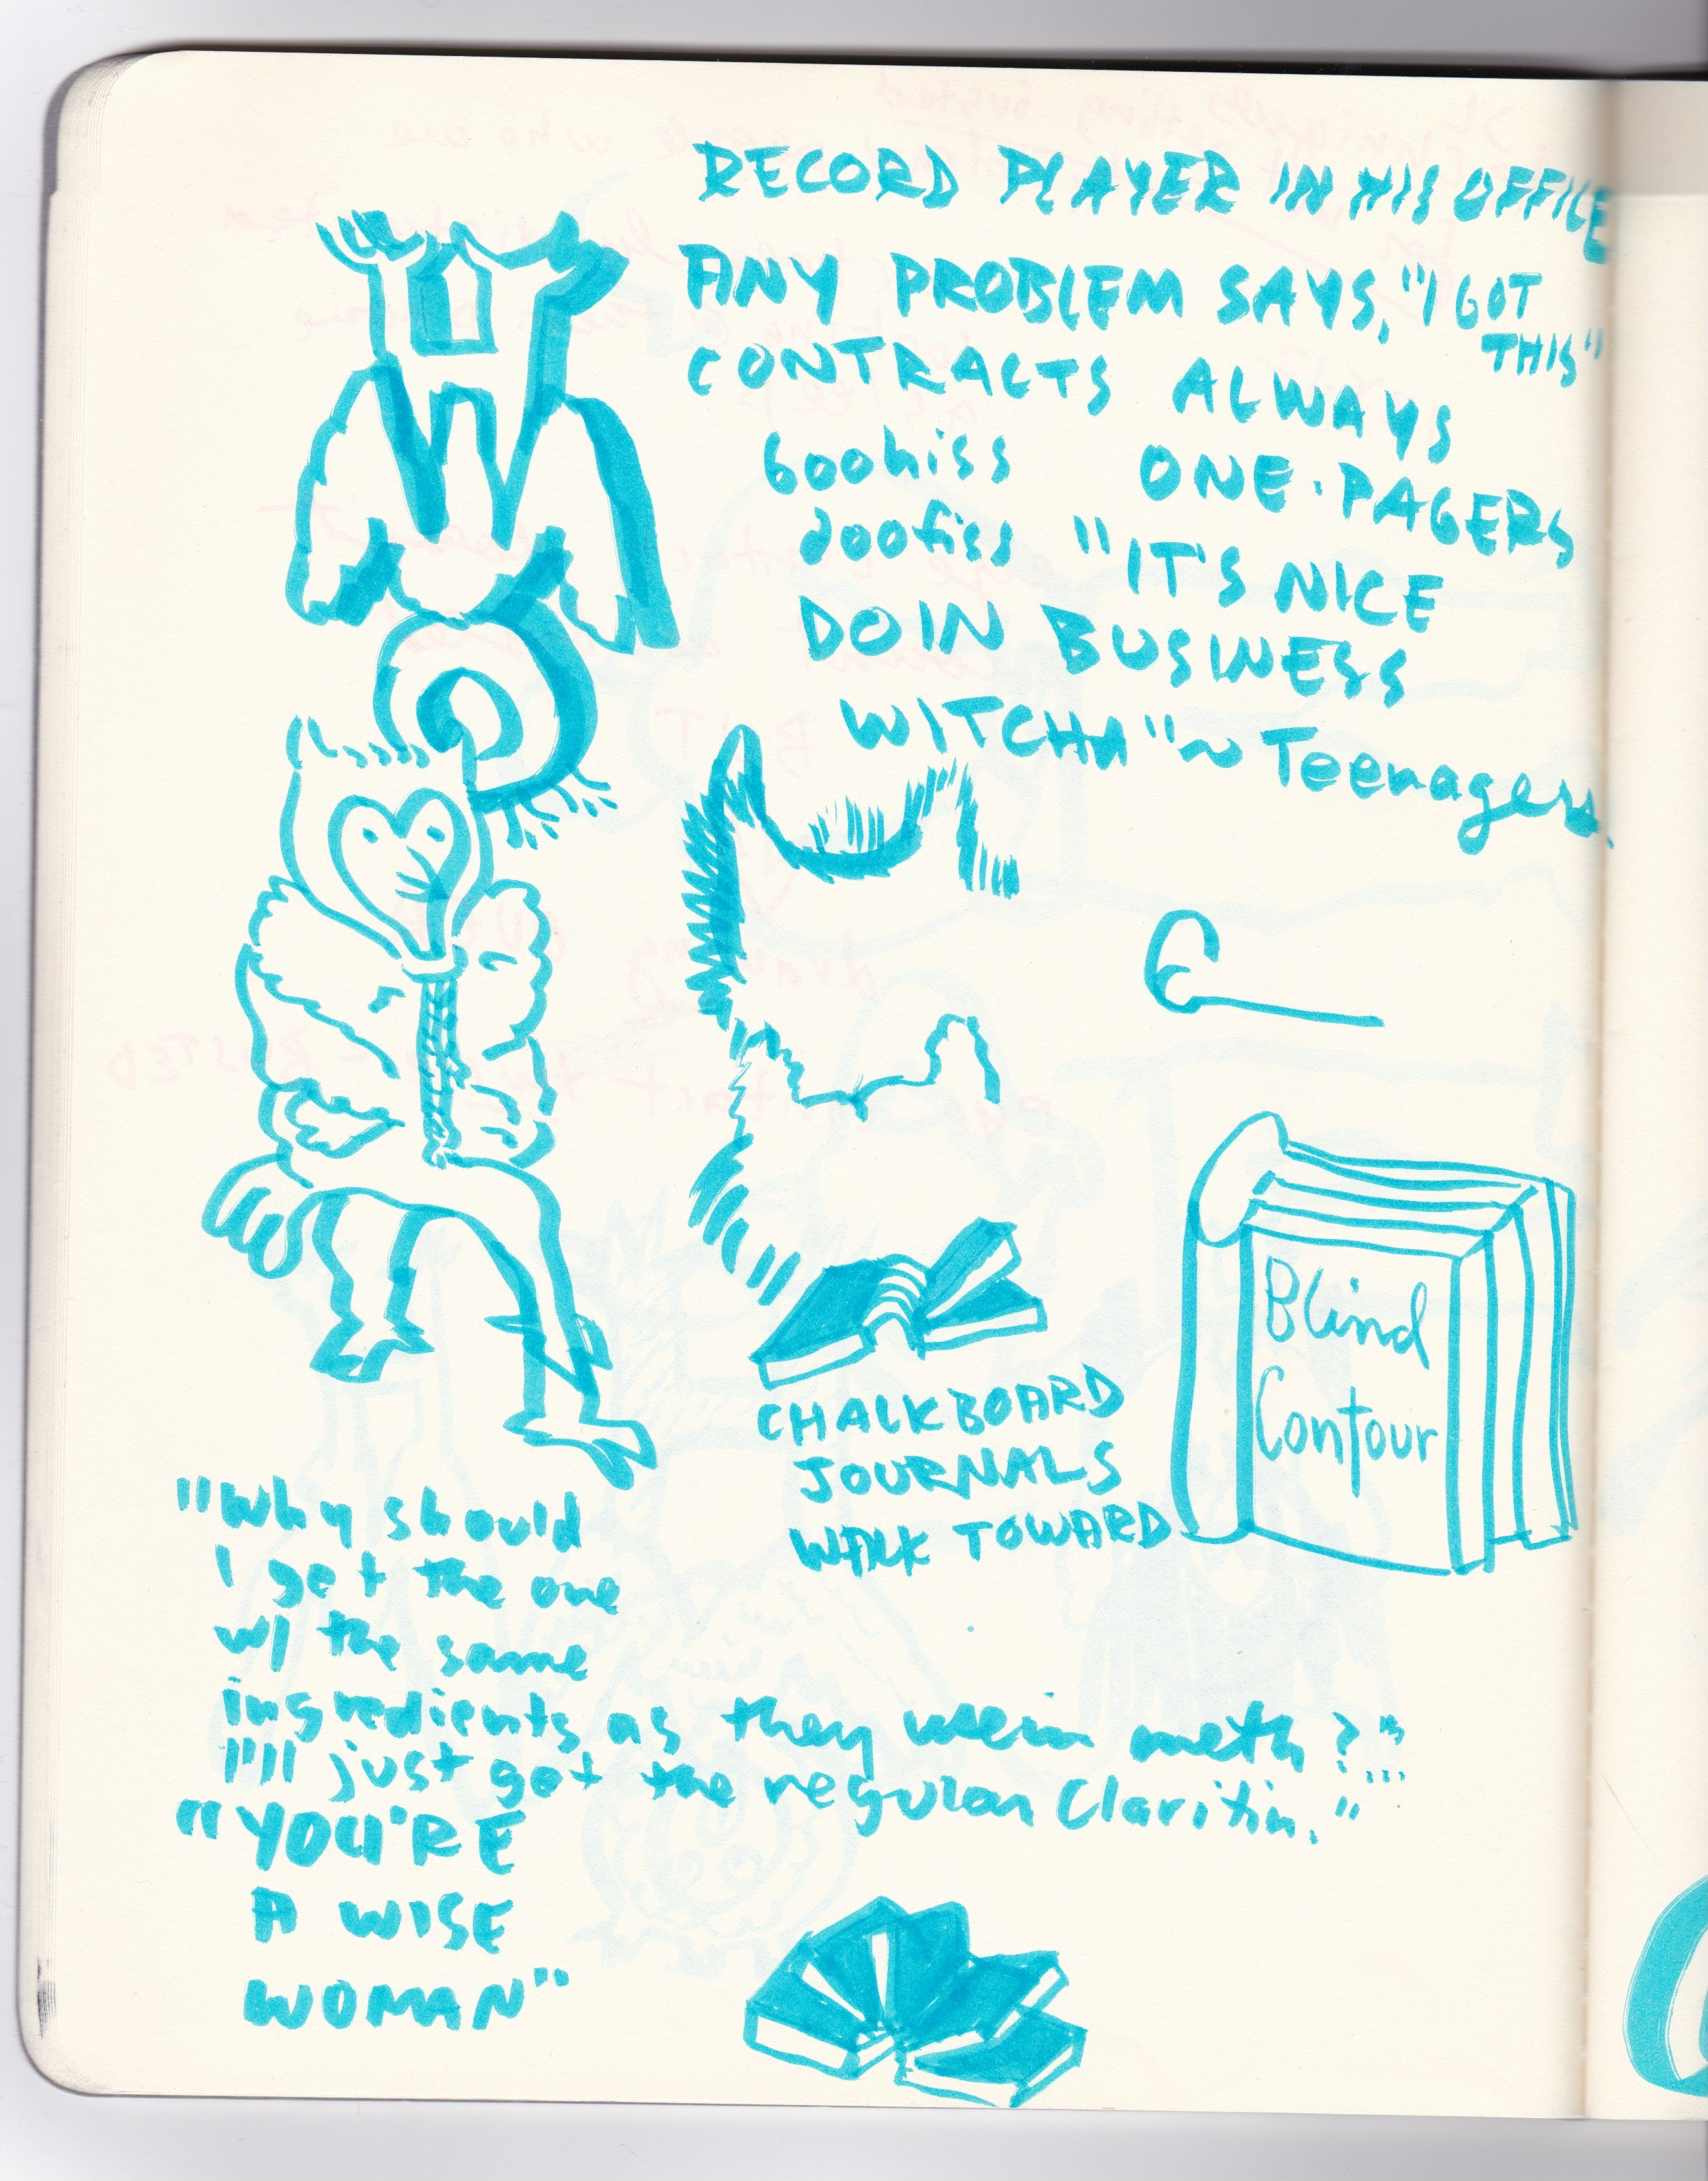 RECORD PLAYER IN HIS OFFICE
ANY PROBLEM SAYS, "I GOT
THIS"
CONTRACTS ALWAYS
boohiss ONE-PAGERS
doofiss "IT'S NICE
DOIN BUSINESS
WITCHA" ~ Teenagers.
Blind
Contour
CHALKBOARD
JOURNALS
WALK TOWARD
"Why should
I get the one
w/ the same
ingredients as they use in meth?"...
I'll just get the regular Claritin."
"YOU'RE
A WISE
WOMAN"